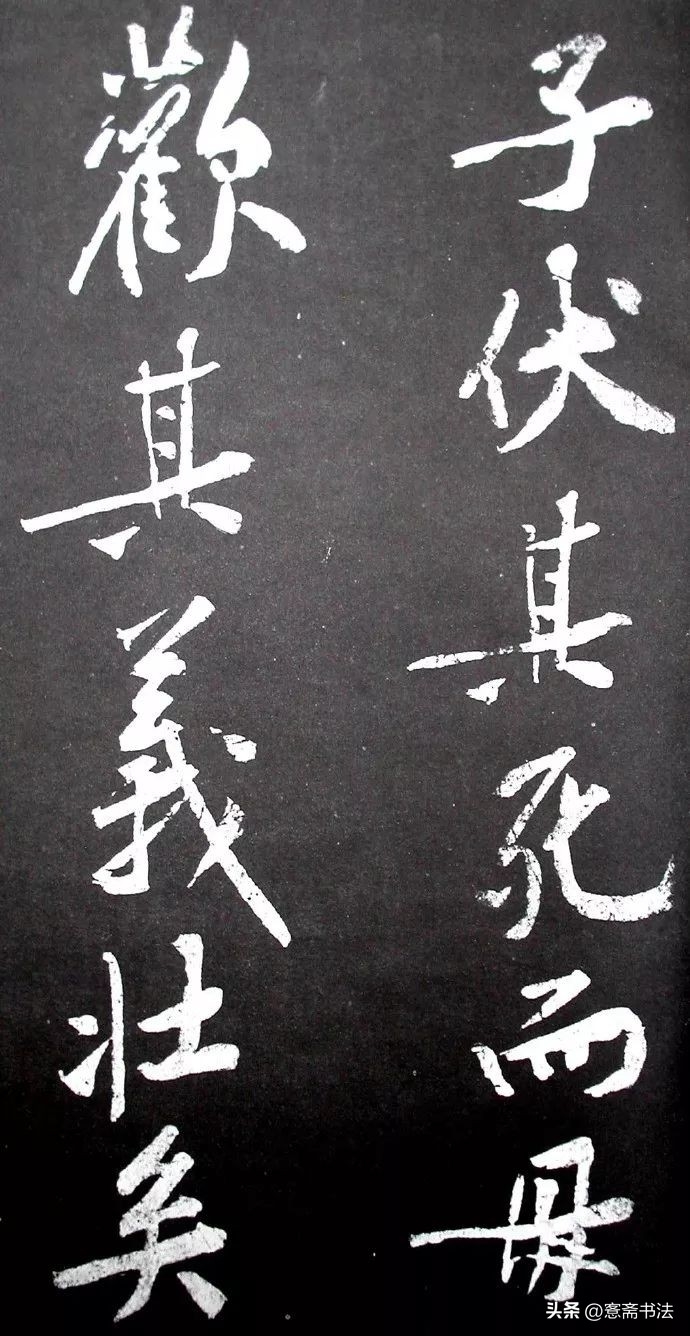 子伏其死而毋
歡其義壯矣
头条 @愙斋书法